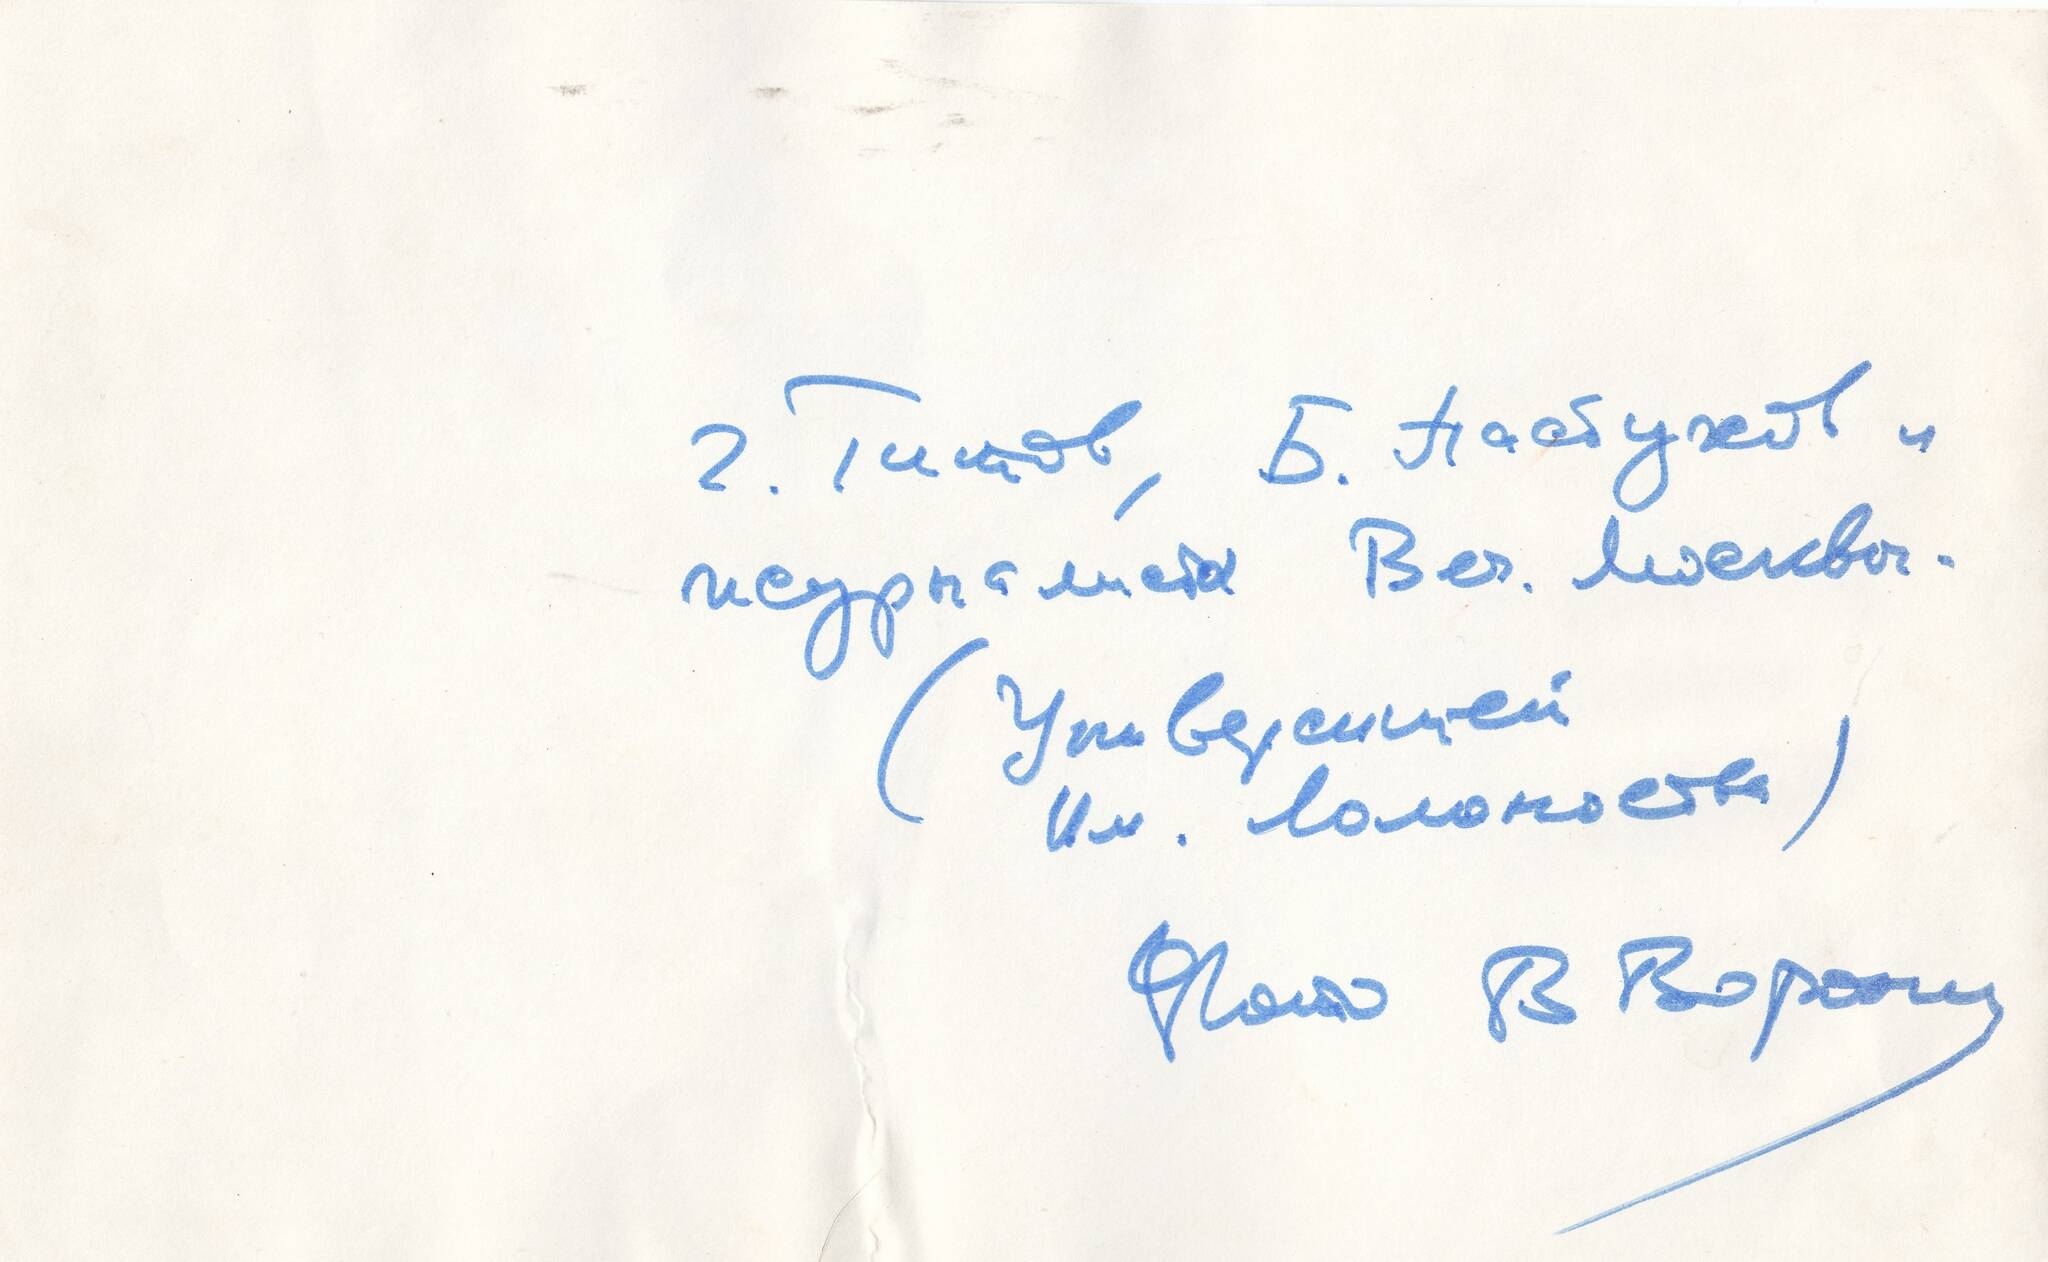 Г. Титов, Б. Пастухов и
журналист Веч. Москвы.
(Университет
им. Ломоносова)
Фото В Воронин